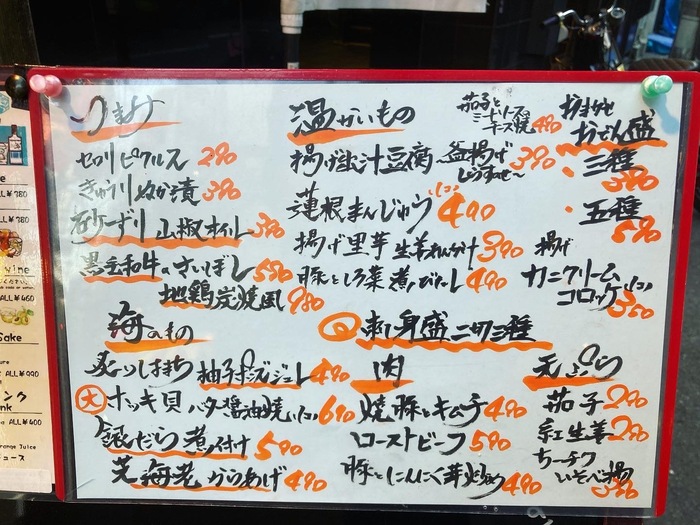 つまみ
セロリピクルス 290
きゅうりぬか漬 390
砂ずり山椒オイル 390
黒毛和牛のさいぼし 550
地鶏炭焼風 980
温かいもの
茄子と
ミートソース
チーズ焼 490
揚げ出汁豆腐
釜揚げ
しらす 390
蓮根まんじゅう (1コ) 490
揚げ里芋 生姜あん 390
豚としろ菜煮びたし 490
おまかせ
おでん盛
・三種
390
・五種
590
揚げ
カニクリーム
コロッケ (1コ) 350
海のもの
柚子ポン酢ジュレ 490
大 ホッキ貝 バター醤油焼 (1コ) 690
銀だら煮付け 590
芝海老からあげ 490
刺身盛 三種
肉
焼豚とキムチ 490
ローストビーフ 590
豚とにんにく芽炒め 490
天ぷら
茄子 290
紅生姜 290
ちーチク
いそべ揚
350
ALL¥780
ALL¥780
wine
ALL¥460
Sake
ALL¥990
ンク
nk
ALL¥400
Orange Juice
ュース